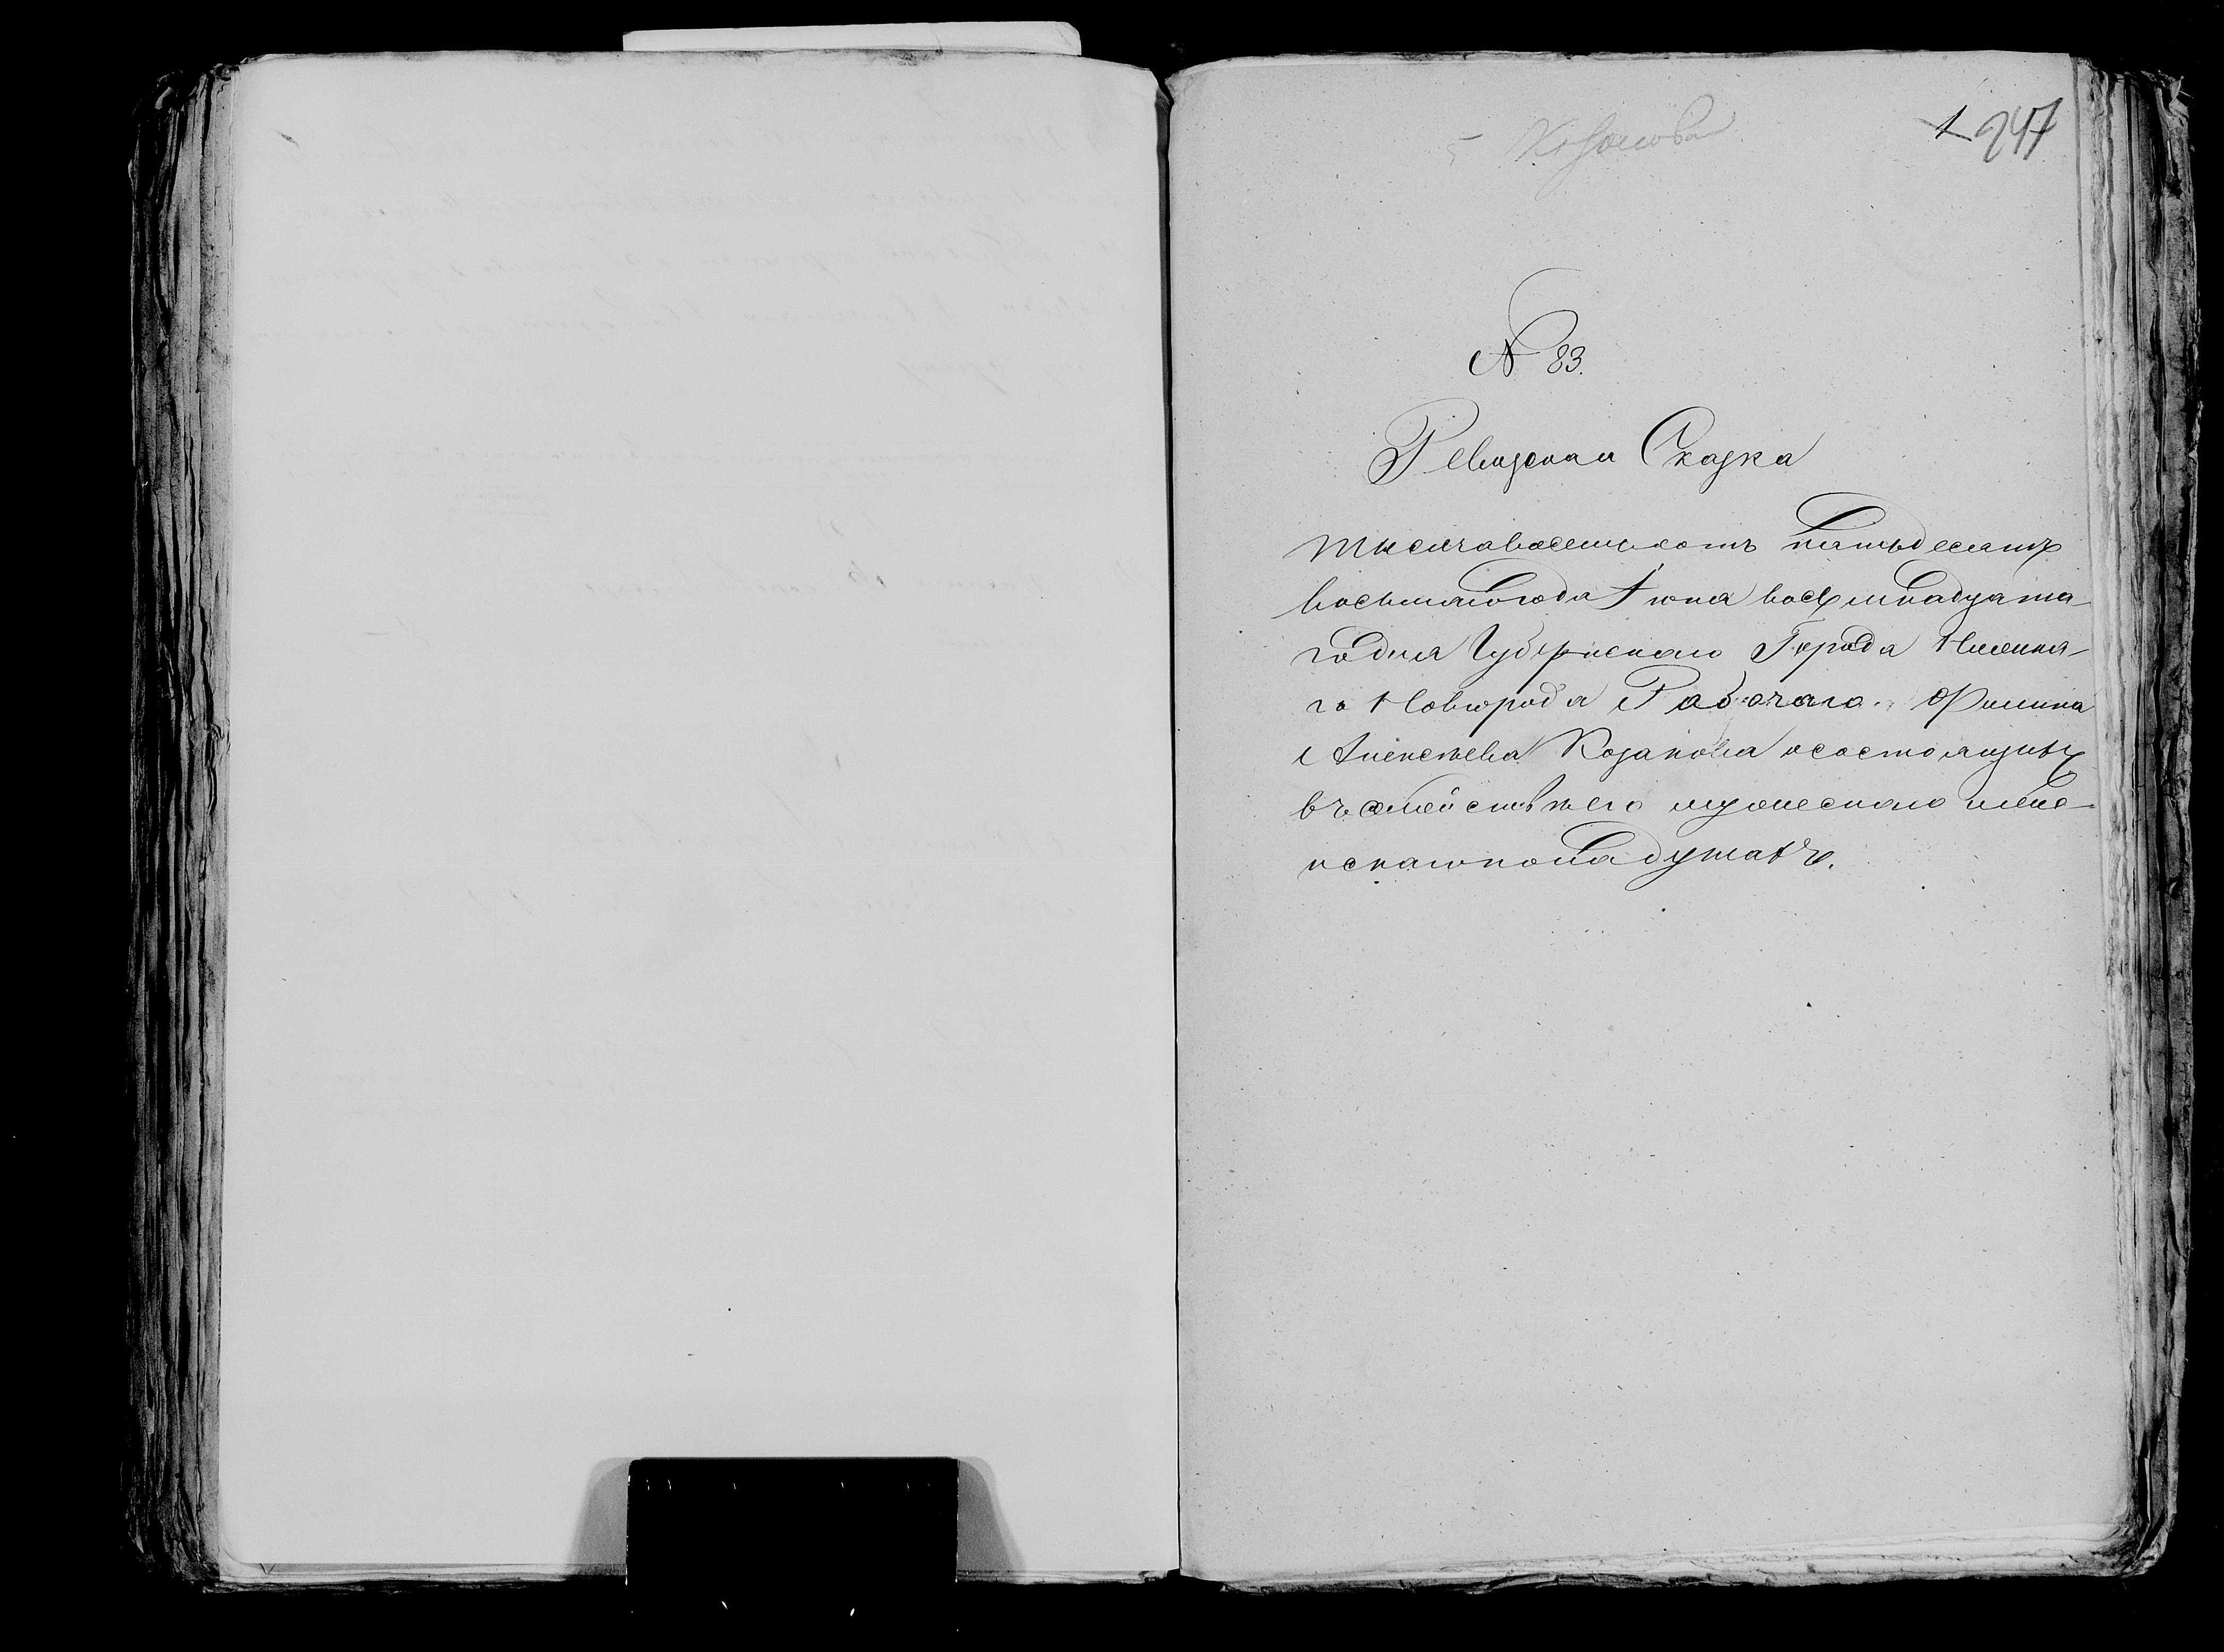 1 247
№ 83.
Ревизская Сказка
тысяча восемь сотъ пятьдесятъ
восьмаго года Іюня восемнадцата-
го дня Губернскаго Города Нижня-
го Новгорода Рабочаго Филипа
Алексѣева Козакова о состоящихъ
въ семействѣ его мужескаго и жен-
нскаго пола душахъ.